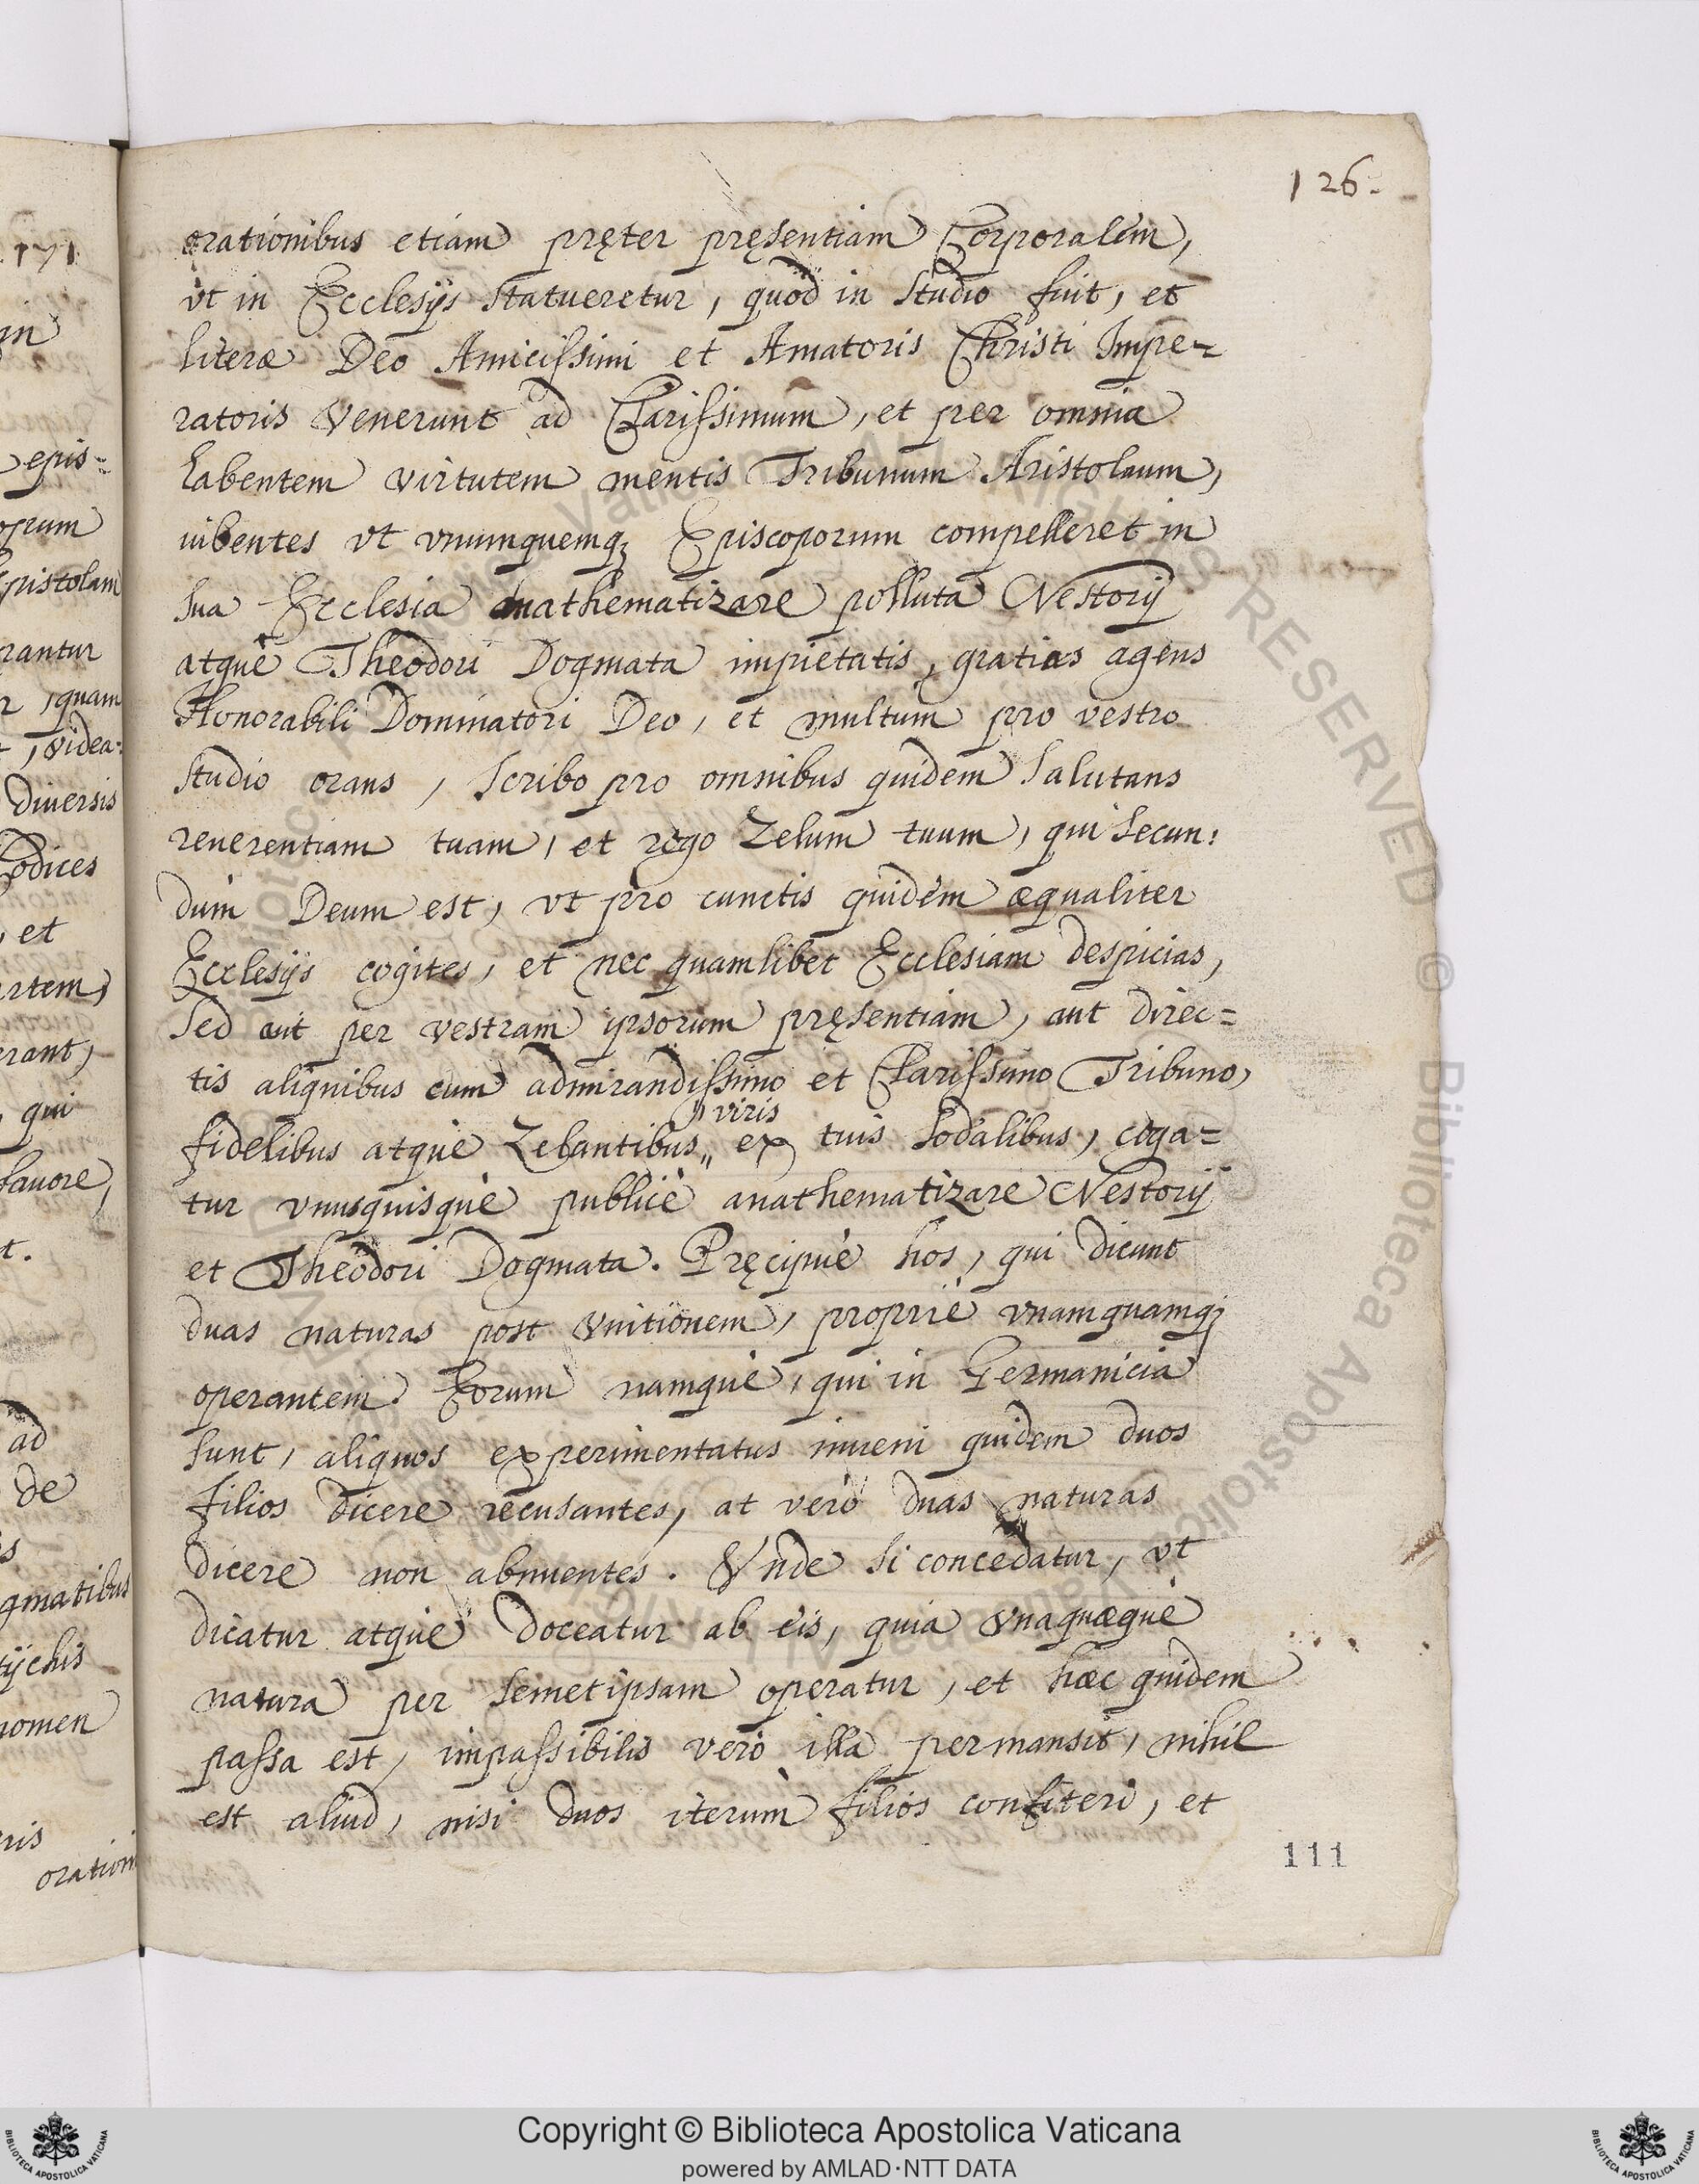 126.
orationibus etiam pręter pręsentiam Corporalem,
vt in Ecclesijs statueretur, quod in studio fuit, et
literæ Deo Amicissimi et Amatoris Christi Impe=
ratoris venerunt ad Clarissimum, et per omnia
habentem virtutem mentis Tribunum Aristolaum,
iubentes vt vnumquemq; Episcoporum compelleret in
sua Ecclesia anathematizare polluta Nestorij
atquè Theodori Dogmata impietatis, gratias agens
Honorabili Dominatori Deo, et multum pro vestro
studio orans, scribo pro omnibus quidem salutans
reuerentiam tuam, et rogo Zelum tuum, qui secun:
dùm Deum est, vt pro cunctis quidem æqualiter
Ecclesijs cogites, et nec quamlibet Ecclesiam despicias,
sed aut per vestram ipsorum pręsentiam, aut direc=
tis aliquibus cum admirandissimo et Clarissimo Tribuno,
fidelibus atquè Zelantibus,, ex tuis sodalibus, coga=
,, viris
tur vnusquisquè publicè anathematizare Nestorij
et Theodori Dogmata. Pręcipuè hos, qui dicunt
duas naturas post vnitionem, propriè vnamquamq;
operantem. Eorum namquè, qui in Germanicia
sunt, aliquos experimentatus inueni quidem duos
filios dicere recusantes, at verò duas naturas
dicere non abnuentes. Vnde si concedatur, vt
dicatur atquè doceatur ab eis, quia vnaquæquè
natura per semetipsam operatur, et hæc quidem
passa est, impassibilis verò illa permansit, nihil
est aliud, nisi duos iterùm filios confiteri, et
111
171
in
epis=
orum
Epistolam
rantur
r, quam
, videa:
diuersis
Codices
, et
rtem,
erant,
, qui
fauore,
t.
ad
de
s
gmatibus
tychis
nomen
ris
oration
Copyright © Biblioteca Apostolica Vaticana
powered by AMLAD·NTT DATA